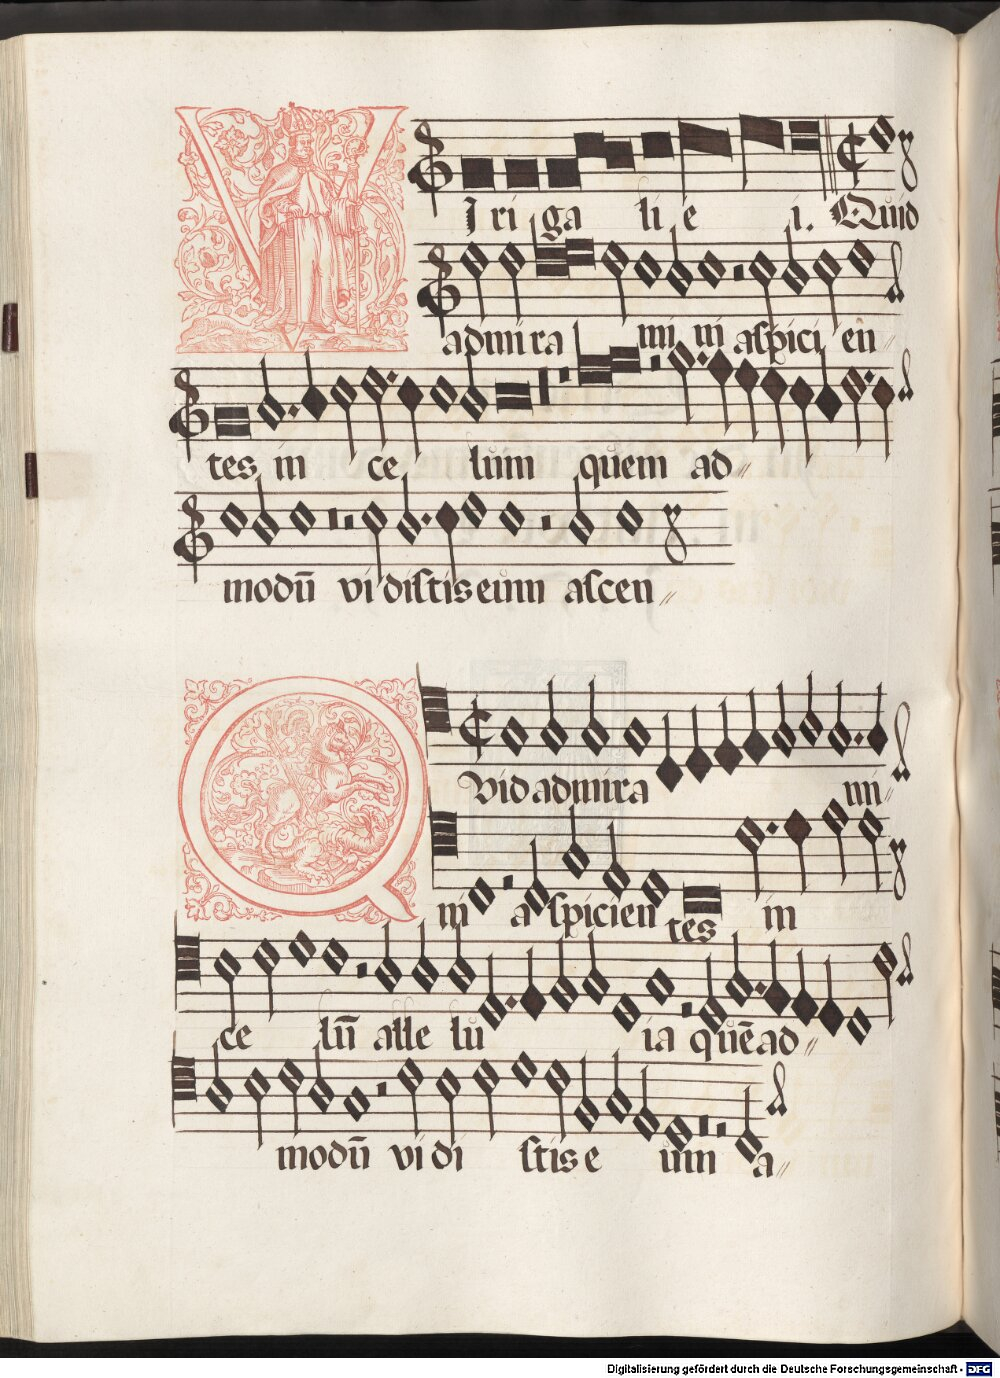 VJ ri ga li e i. Quid
admira mi ni aspici en
tes in ce lum quem ad
modū vi distis eum ascen
QVid admira mi
ni a spicien tes in
ce lū alle lu ia quēad
modū vi di stis e um a
Digitalisierung gefördert durch die Deutsche Forschungsgemeinschaft - DFG